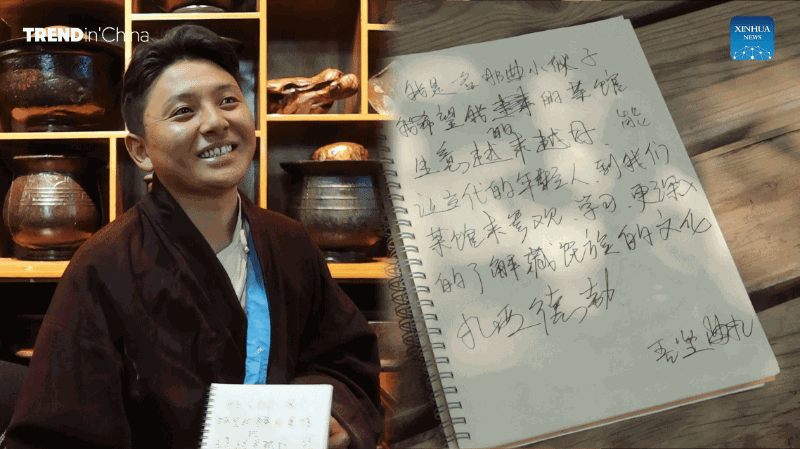 TRENDin'China
XINHUA
NEWS
我是名那曲小伙子
我希望我的菜馆
生意越来越好、能
让当代的年轻人到我们
菜馆来参观、学习、更深入
的了解藏民族的文化
扎西德勒